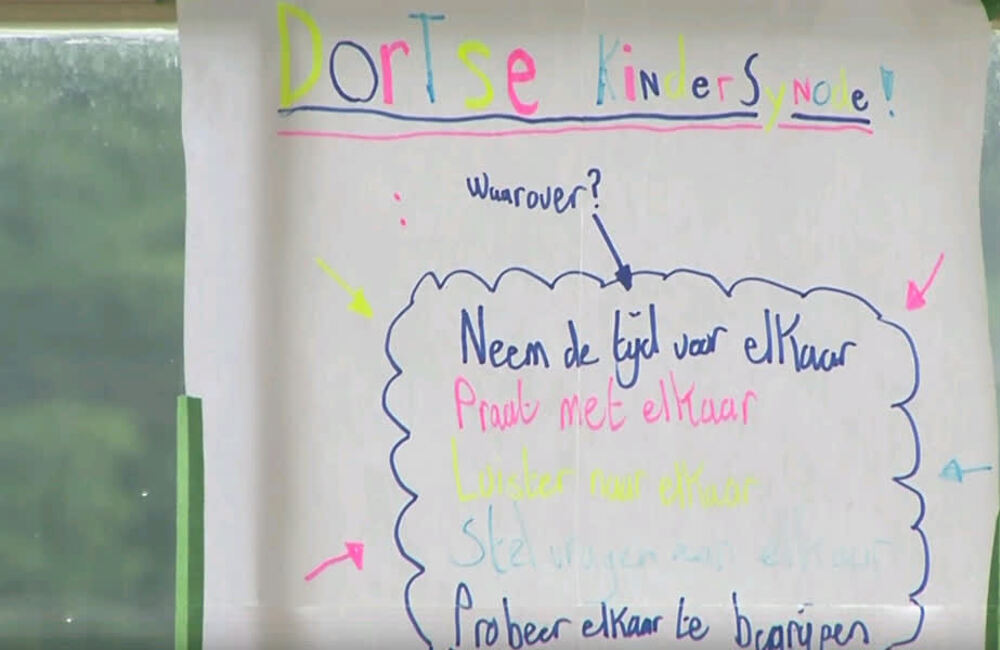 DorTse KinderSynode!
Waarover?
Neem de tijd voor elkaar
Praat met elkaar
Luister naar elkaar
Stel vragen aan elkaar
Probeer elkaar te begrijpen